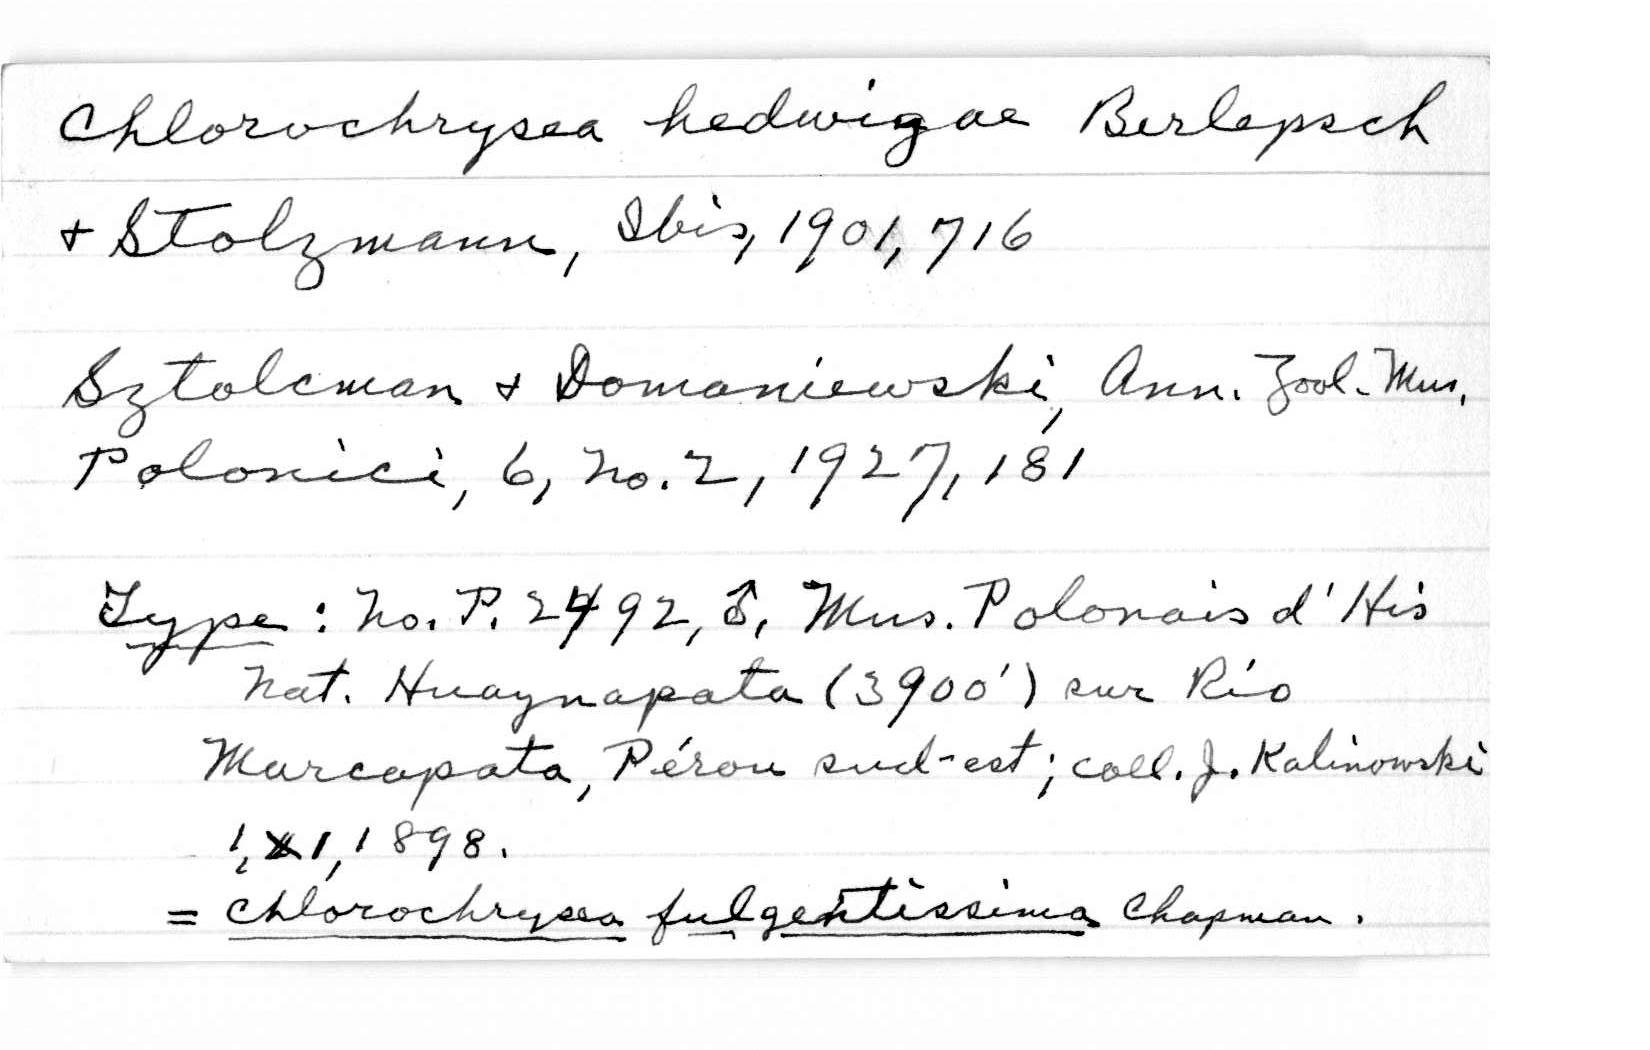 Chlorochrysea hedwigae Berlepsch
+ Stolzmann, Ibis, 1901, 716
Sztolcman + Domaniewski, Ann. Zool. Mus.
Polonici, 6, No. 2, 1927, 181
Type : No. P. 2492, ♂, Mus. Polonais d' His
Nat. Huaynapata (3900') sur Río
Marcapata, Pérou sud-est; coll. J. Kalinowski
1, XI, 1898.
= Chlorochrysea fulgentissima Chapman.